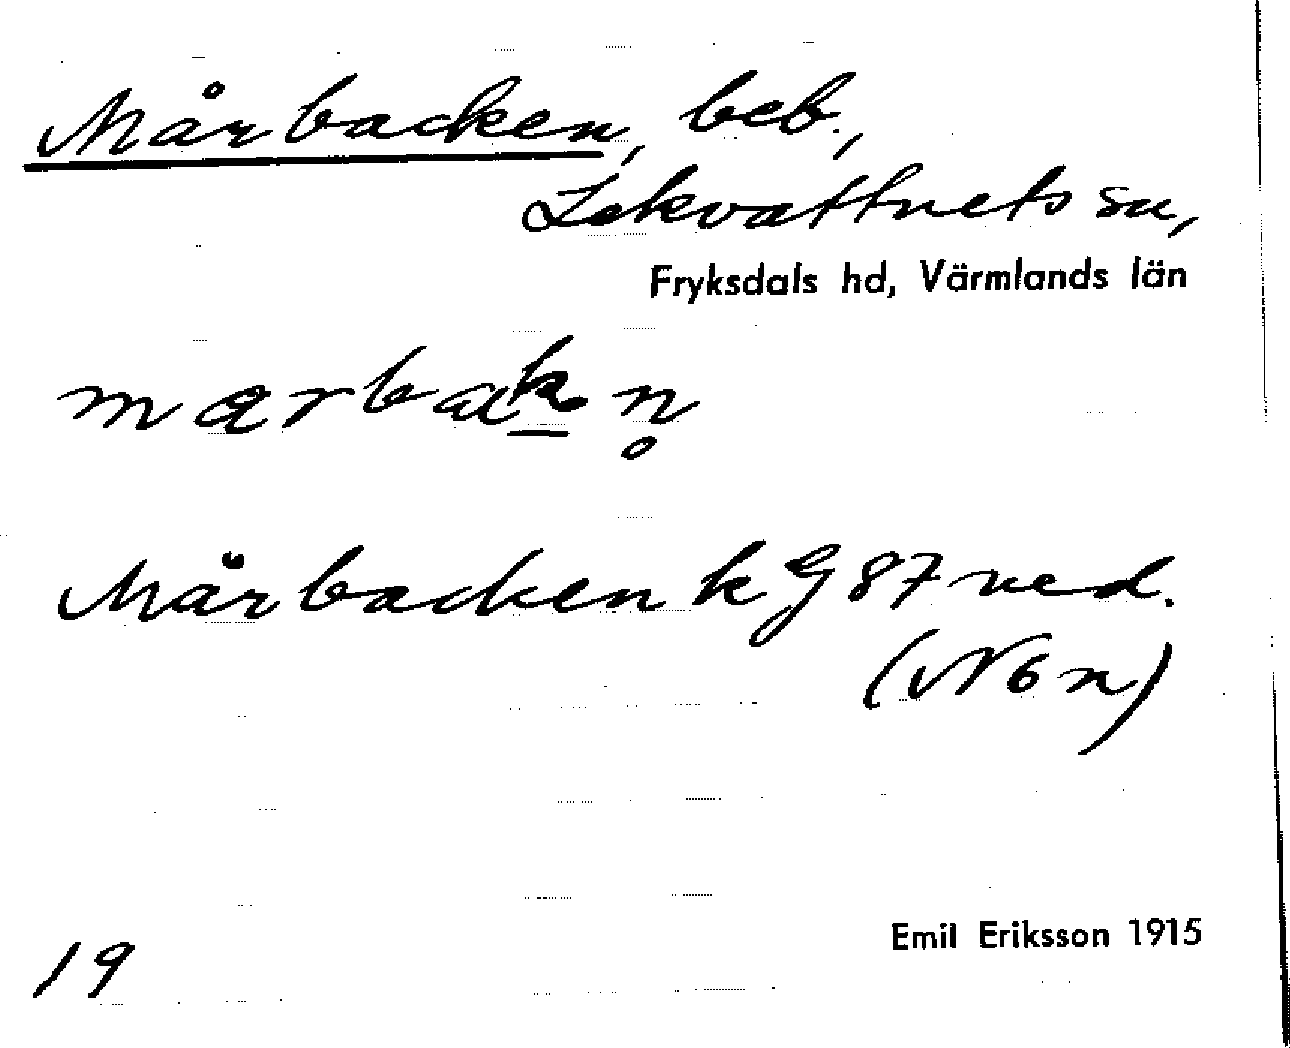 Mårbacken, beb.,
Lekvattnets sn,
Fryksdals hd, Värmlands län
Mårbacken k G 87 ned.
(Nön)
19
Emil Eriksson 1915